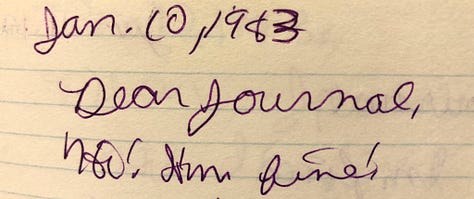 Jan. 10, 1983
Dear Journal,
Hi! I'm fine!